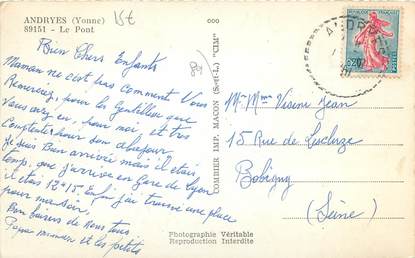 ANDRYES (Yonne)
89151 - Le Pont
15€
Bien Chers Enfants
Maman ne c'est comment Vous
Remercier, pour la Gentillesse que
Vous avez eu, pour moi, et très
Contente pour son
je suis Bien arrivé mais il était
temps, que j'arrive en Gare de Lyon
il était 12h15. Enfin j'ai trouvé une place
pour m'asseoir,
Bon baisers de nous tous
Papa maman et les petits
COMBIER IMP. MACON (S.-et-L.) "CIM"
ANDRYES
REPUBLIQUE FRANÇAISE
0,20
POSTES
Mr Mme Jean
15 Rue de
Bobigny
(Seine)
Photographie Véritable
Reproduction Interdite